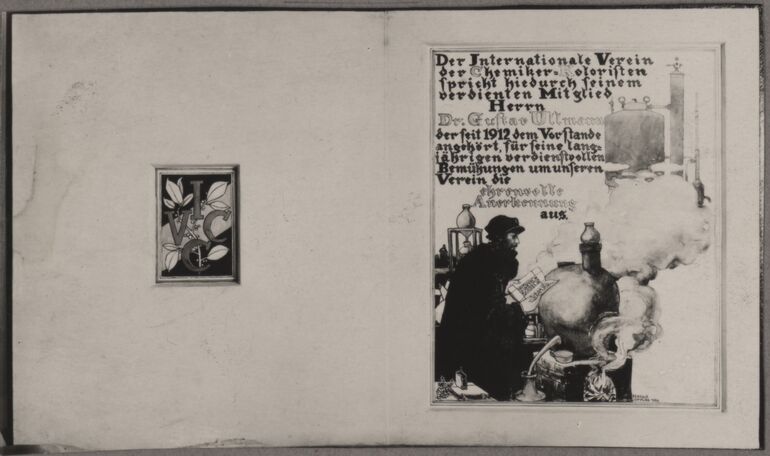 I
V C
C
Der Internationale Verein
der Chemiker-Koloristen
spricht hiedurch seinem
verdienten Mitglied
Herrn
Dr. Gustav Ullmann
der seit 1912 dem Vorstande
angehört, für seine lang-
jährigen verdienstvollen
Bemühungen um unseren
Verein die
ehrenvolle
Anerkennung
aus.